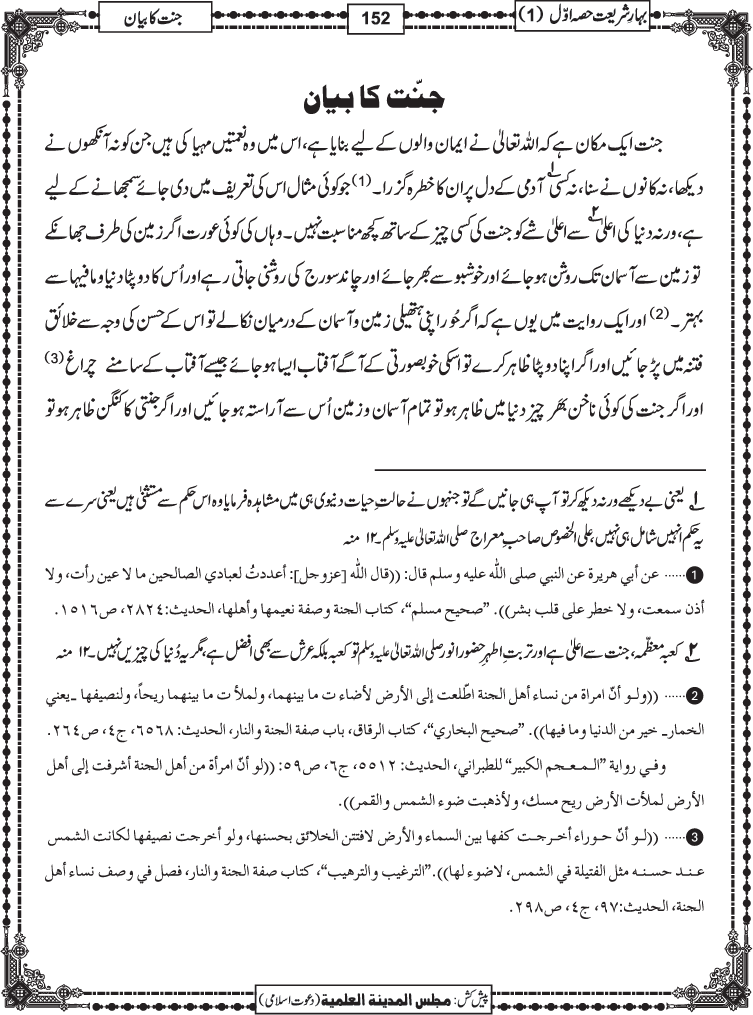 بہارِ شریعت حصہ اوّل (1)
152
جنت کا بیان
جنّت کا بیان
جنت ایک مکان ہے کہ اللہ تعالیٰ نے ایمان والوں کے لیے بنایا ہے، اس میں وہ نعمتیں مہیا کی ہیں جن کو نہ آنکھوں نے
دیکھا، نہ کانوں نے سنا، نہ کسی ۱؎ آدمی کے دل پر ان کا خطرہ گزرا۔ (1) جو کوئی مثال اس کی تعریف میں دی جائے سمجھانے کے لیے
ہے، ورنہ دنیا کی اعلیٰ ۲؎ سے اعلیٰ شے کو جنت کی کسی چیز کے ساتھ کچھ مناسبت نہیں۔ وہاں کی کوئی عورت اگر زمین کی طرف جھانکے
تو زمین سے آسمان تک روشن ہو جائے اور خوشبو سے بھر جائے اور چاند سورج کی روشنی جاتی رہے اور اُس کا دوپٹا دنیا و مافیہا سے
بہتر۔ (2) اور ایک روایت میں یوں ہے کہ اگر حُور اپنی ہتھیلی زمین و آسمان کے درمیان نکالے تو اس کے حسن کی وجہ سے خلائق
فتنہ میں پڑ جائیں اور اگر اپنا دوپٹا ظاہر کرے تو اسکی خوبصورتی کے آگے آفتاب ایسا ہو جائے جیسے آفتاب کے سامنے چراغ (3)
اور اگر جنت کی کوئی ناخن بھَر چیز دنیا میں ظاہر ہو تو تمام آسمان و زمین اُس سے آراستہ ہو جائیں اور اگر جنتی کا کنگن ظاہر ہو تو
۱؎ یعنی بے دیکھے ورنہ دیکھ کر تو آپ ہی جانیں گے تو جنہوں نے حالتِ حیات دنیوی ہی میں مشاہدہ فرمایا وہ اس حکم سے مستثنیٰ ہیں یعنی سرے سے
یہ حکم انہیں شامل ہی نہیں، علی الخصوص صاحبِ معراج صلی اللہ تعالیٰ علیہ وسلم ۔ ۱۲ منہ
1 ...... عن أبي هريرة عن النبي صلى الله عليه وسلم قال: ((قال الله [عزوجل]: أعددتُ لعبادي الصالحين ما لا عين رأت، ولا
أذن سمعت، ولا خطر على قلب بشر)). ”صحيح مسلم“، كتاب الجنة وصفة نعيمها وأهلها، الحديث:٢٨٢٤، ص١٥١٦.
۲؎ کعبہ معظّمہ، جنت سے اعلیٰ ہے اور تربتِ اطہرِ حضور انور صلی اللہ تعالیٰ علیہ وسلم تو کعبہ بلکہ عرش سے بھی افضل ہے، مگر یہ دُنیا کی چیزیں نہیں۔ ۱۲ منہ
2 ...... ((ولو أنّ امراة من نساء أهل الجنة اطّلعت إلى الأرض لأضاء ت ما بينهما، ولملأ ت ما بينهما ريحاً، ولنصيفها ـ يعني
الخمارـ خير من الدنيا وما فيها)). ”صحيح البخاري“، كتاب الرقاق، باب صفة الجنة والنار، الحديث: ٦٥٦٨، ج٤، ص٢٦٤.
وفي رواية ”المعجم الكبير“ للطبراني، الحديث: ٥٥١٢، ج٦، ص٥٩: ((لو أنّ امرأة من أهل الجنة أشرفت إلى أهل
الأرض لملأت الأرض ريح مسك، ولأذهبت ضوء الشمس والقمر)).
3 ...... ((لو أنّ حوراء أخرجت كفها بين السماء والأرض لافتتن الخلائق بحسنها، ولو أخرجت نصيفها لكانت الشمس
عند حسنه مثل الفتيلة في الشمس، لاضوء لها)). ”الترغيب والترهيب“، كتاب صفة الجنة والنار، فصل في وصف نساء أهل
الجنة، الحديث:٩٧، ج٤، ص٢٩٨.
پیش کش: مجلس المدینة العلمیة (دعوت اسلامی)